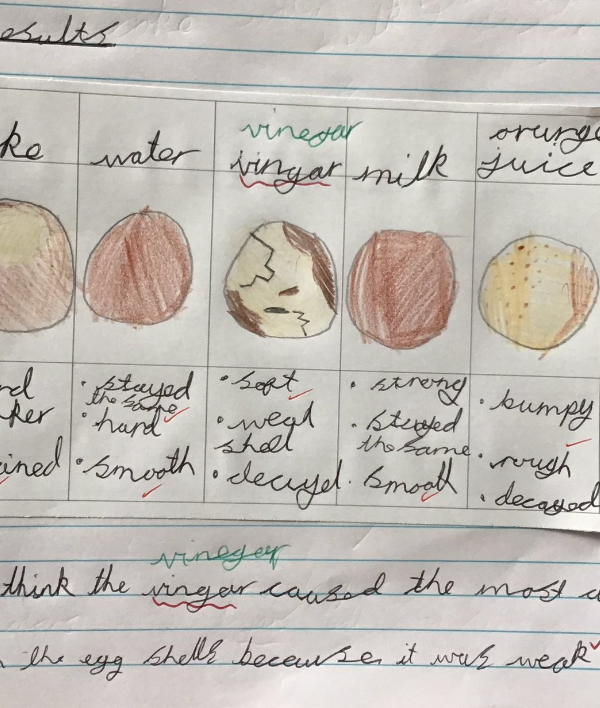 esults
ke
water
vinegar
vingar
milk
orange
juice
rd
ker
ained
• stayed
the same
• hard
• smooth
• soft
• weak
shell
• decayed
• strong
• stayed
the same
• smooth
• bumpy
• rough
• decayed
vinegar
think the vingar caused the most
the egg shells because it was weak